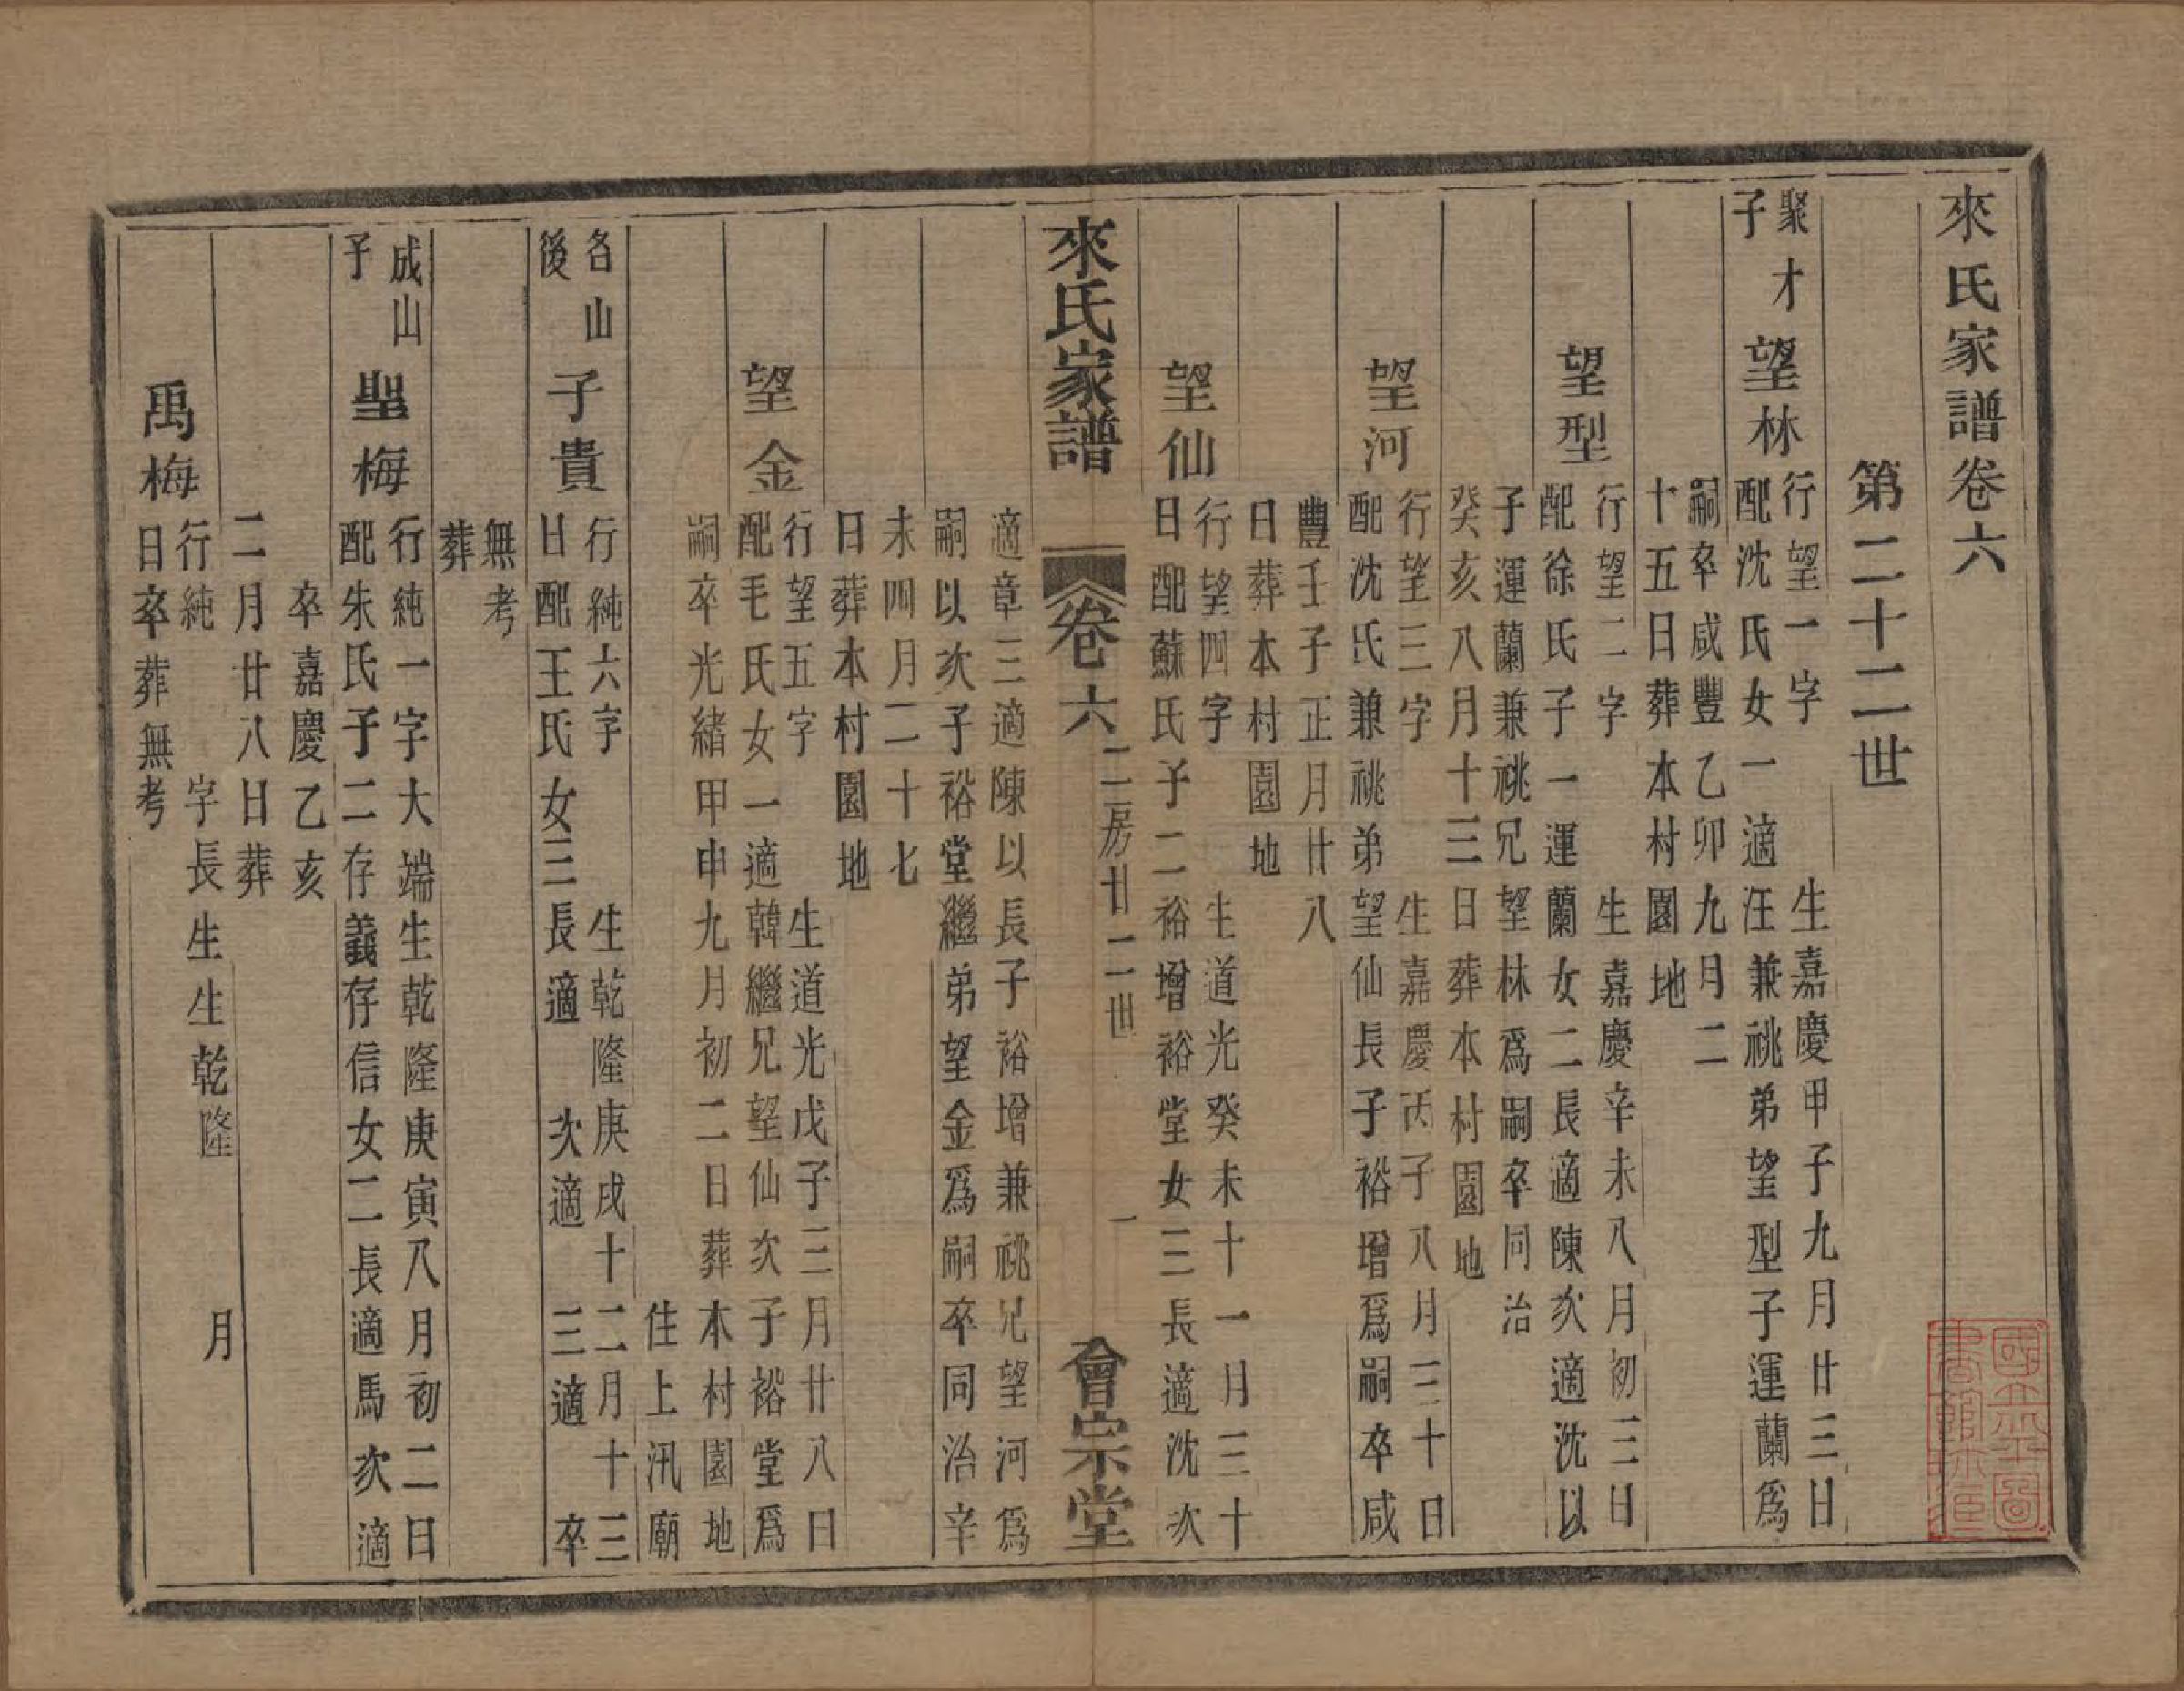 來氏家譜卷六
第二十二世
聚才子
望林
行望一字 生嘉慶甲子九月廿三日
配沈氏女一適汪兼祧弟望型子運蘭爲
嗣卒咸豐乙卯九月二
十五日葬本村園地
望型
行望二字 生嘉慶辛未八月初三日
配徐氏子一運蘭女二長適陳次適沈以
子運蘭兼祧兄望林爲嗣卒同治
癸亥八月十三日葬本村園地
望河
行望三字 生嘉慶丙子八月三十日
配沈氏兼祧弟望仙長子裕增爲嗣卒咸
豐壬子正月廿八
日葬本村園地
望仙
行望四字 生道光癸未十一月三十
日配蘇氏子二裕增裕堂女三長適沈次
來氏家譜 卷六 二房廿二世 一 會宗堂
適章三適陳以長子裕增兼祧兄望河爲
嗣以次子裕堂繼弟望金爲嗣卒同治辛
未四月二十七
日葬本村園地
望金
行望五字 生道光戊子三月廿八日
配毛氏女一適韓繼兄望仙次子裕堂爲
嗣卒光緒甲申九月初二日葬本村園地
住上汛廟
名山後
子貴
行純六字 生乾隆庚戌十二月十三
日配王氏女三長適 次適 三適 卒
無考
葬
成山子
聖梅
行純一字大端生乾隆庚寅八月初二日
配朱氏子二存義存信女二長適馬次適
卒嘉慶乙亥
二月廿八日葬
禹梅
行純 字長生生乾隆 月
日卒葬無考